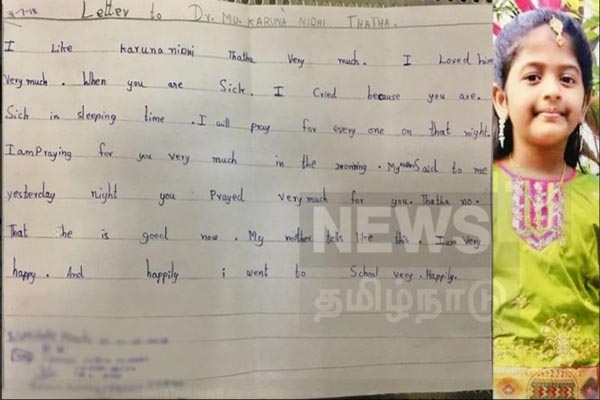 -7-18
Letter to Dr. Mu. KARUNA NIDHI THATHA.
I Like karunanidhi Thatha Very much. I Loved him
Very much. When you are Sick. I Cried because you are.
Sick in sleeping time. I will pray for every one on that night.
I am Praying for you very much in the morning. My mother Said to me
yesterday night you Prayed very much for you. Thatha no.
That he is good now. My mother tells like this. I am very
happy. And happily i went to School very. Happily.
NEWS
தமிழ்நாடு